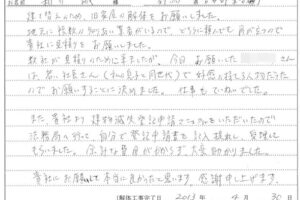 建て替えのため、旧家屋の解体をお願いしました。
地元に複数の解体業者がいるので、どうに頼んでも同じなので
貴社に見積りをお願いしました。
数社が見積りのために来ましたが、今回お願いした さん
は、若い社長さん(私の息子と同世代)で好感の持てる人でした
のでお願いすることに決めました。仕事もていねいでした。
また貴社より建物滅失登記申請マニュアルをいただいたので
法務局へ行って、自分で登記申請書を記入提出し、受理して
もらいました。余計な費用がかからず大変助かりました。
貴社にお願いして本当に良かったと思います。感謝申し上げます。
(解体工事完了日) 2013年 4月 30日